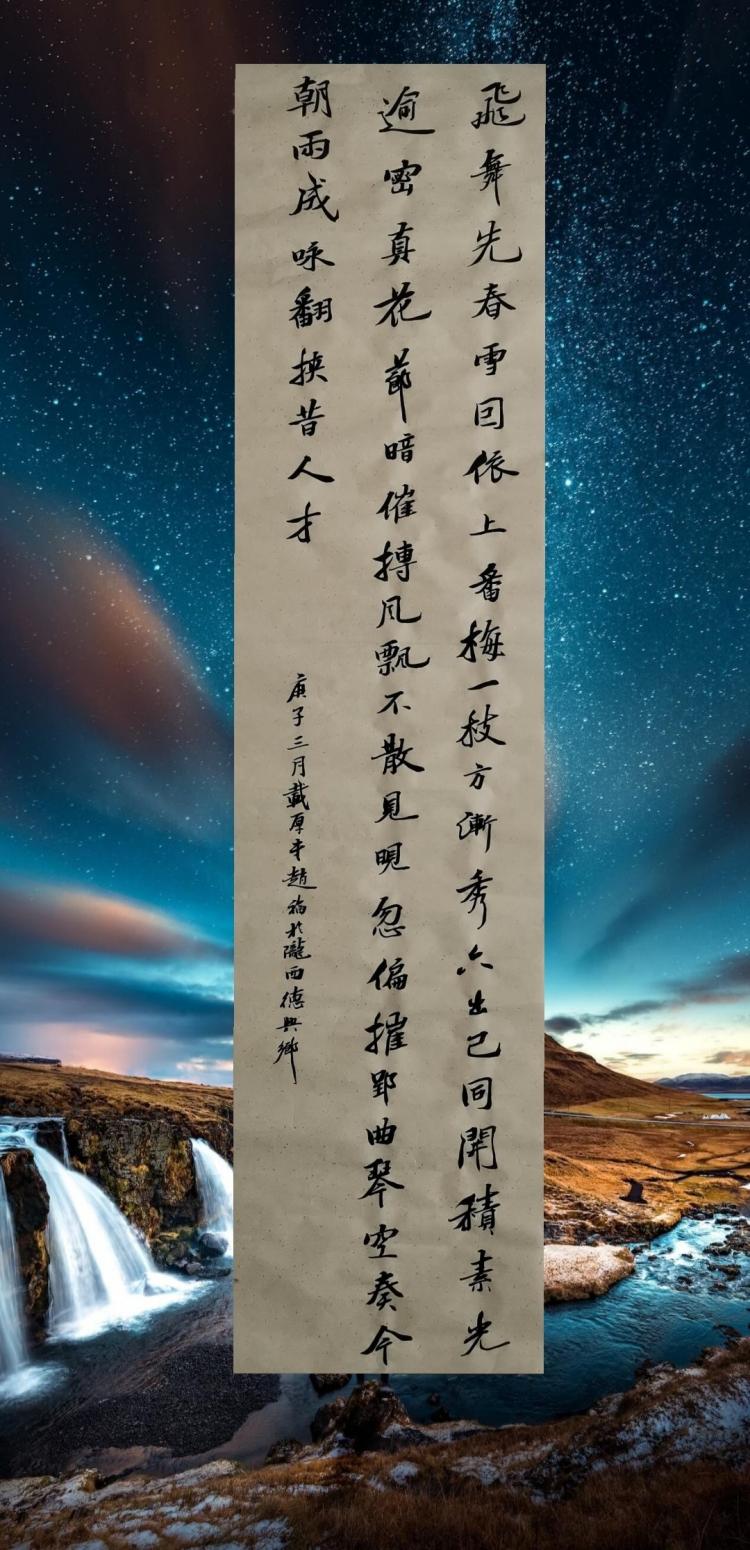 飛舞先春雪囙依上番梅一枝方漸秀六出已同開積素光
逾密真花節暗催摶風飄不散見晛忽偏摧郢曲琴空奏今
朝雨成咏翻挾昔人才
庚子三月載厚趙於隴西德興鄉